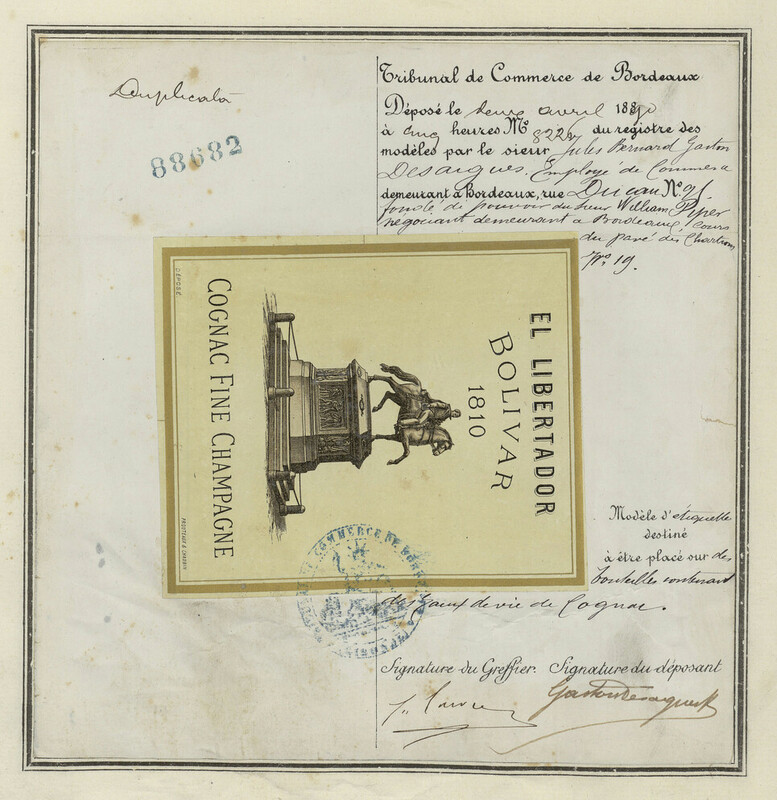 Duplicata
88682
Tribunal de Commerce de Bordeaux
Déposé le avril 1880
à cinq heures No 8224 du registre des
modèles par le sieur Jules Bernard Gaston
Desaigues. Employé de Commerce
demeurant à Bordeaux, rue Ducau No. 91
fondé de pouvoir du sieur William Piper
négociant demeurant à Bordeaux, cours
du pavé des Chartrons
No. 19.
DÉPOSÉ
EL LIBERTADOR
BOLIVAR
1810
COGNAC FINE CHAMPAGNE
Modèle d'étiquette
destiné
à être placé sur des
bouteilles contenant
des eaux de vie de Cognac.
COMMERCE DE BORDEAUX
Signature du Greffier. Signature du déposant